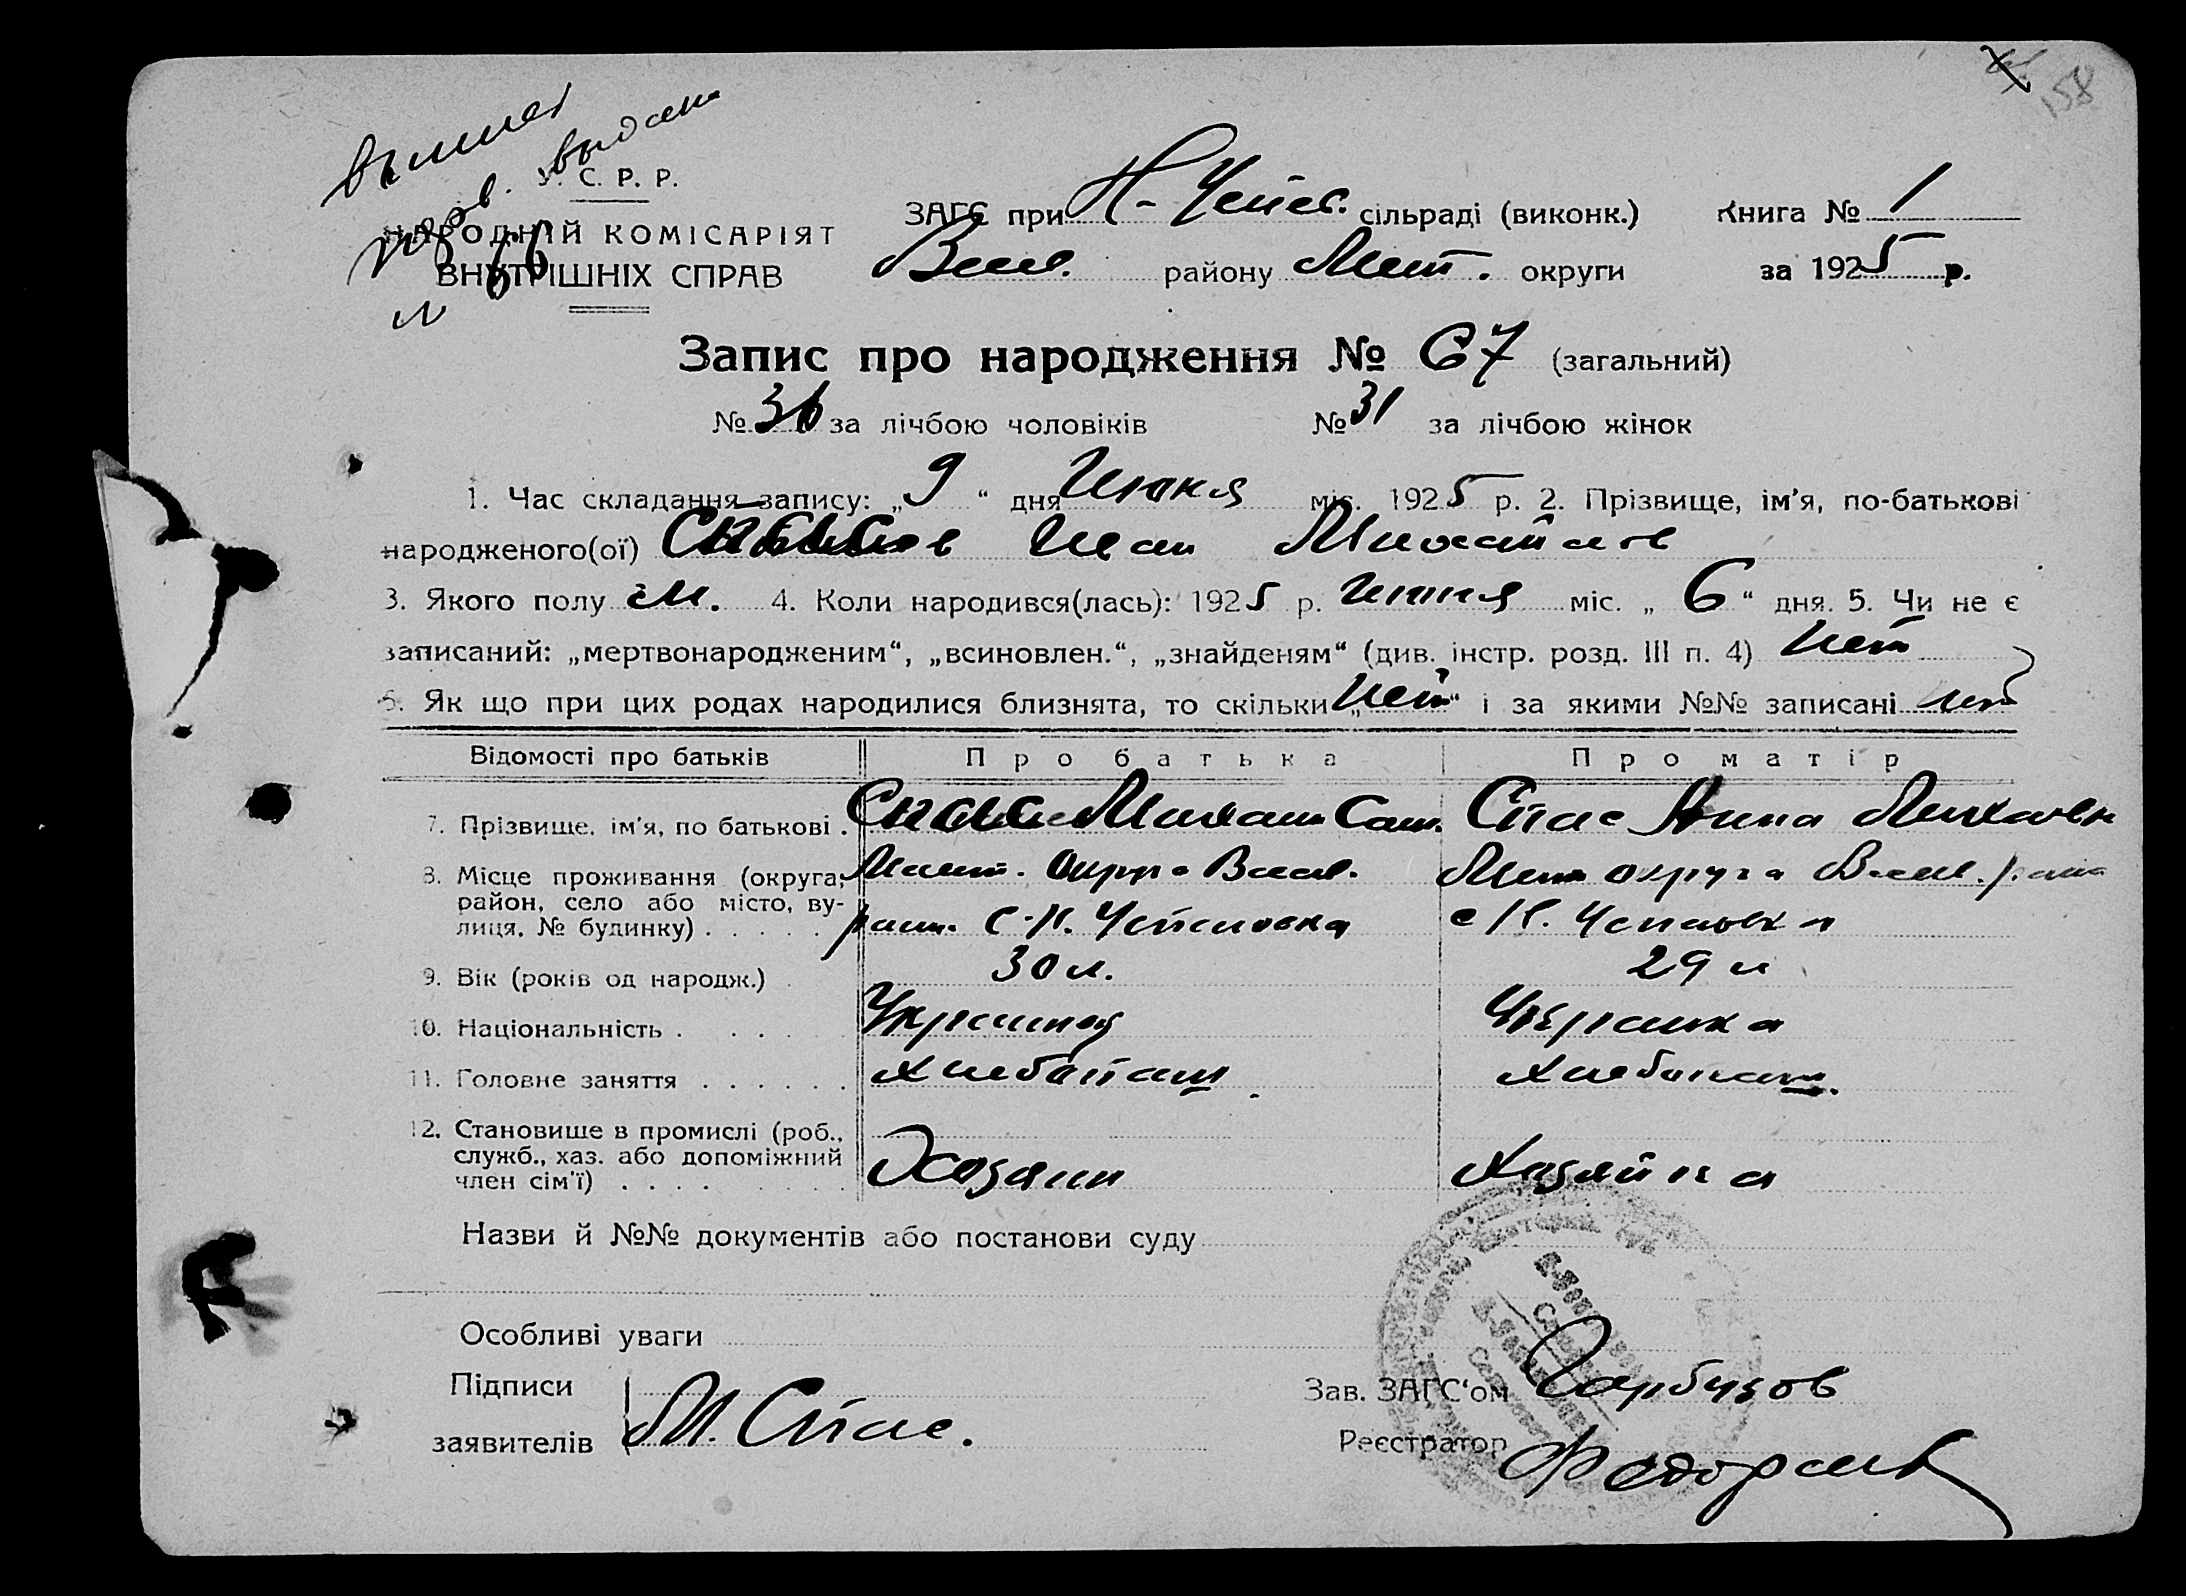 158
выписка
выдана
У. С. Р. Р.
НАРОДНІЙ КОМІСАРІЯТ
ВНУТРІШНІХ СПРАВ
ЗАГС при Н-Чепел. сільраді (виконк.) Книга № 1
Весел. району Мелит. округи за 1925 р.
Запис про народження № 67 (загальний)
№ 36 за лічбою чоловіків № 31 за лічбою жінок
1. Час складання запису: „9“ дня Июня міс. 1925 р. 2. Прізвище, ім'я, по-батькові
народженого(ої) Иван Михайлов
3. Якого полу м. 4. Коли народився(лась): 1925 р. июня міс. „6“ дня. 5. Чи не є
записаний: „мертвонародженим“, „всиновлен.“, „знайденям“ (див. інстр. розд. III п. 4) нет
6. Як що при цих родах народилися близнята, то скільки „нет“ і за якими №№ записані нет
Відомості про батьків Про батька Про матір
7. Прізвище, ім'я, по батькові . Спас Михаил Спас Анна Михайлов
8. Місце проживання (округа, Мелит. округа Весел. Мелит округа Весел. района
район, село або місто, ву-
лиця, № будинку) . . . . . раин. С-Н. Чепеловка с Н. Чепаовка
9. Вік (років од народж.) . 30 л. 29 л
10. Національність . . . . Украинец Украинка
11. Головне заняття . . . . . . хлебопаш хлебопаш.
12. Становише в промислі (роб.,
служб., хаз. або допоміжний
член сім'ї) . . . . Хозяин Хазяйка
Назви й №№ документів або постанови суду
Особливі уваги
Підписи
заявителів М. Спас.
Зав. ЗАГС'ом Гарбузов
Реєстратор